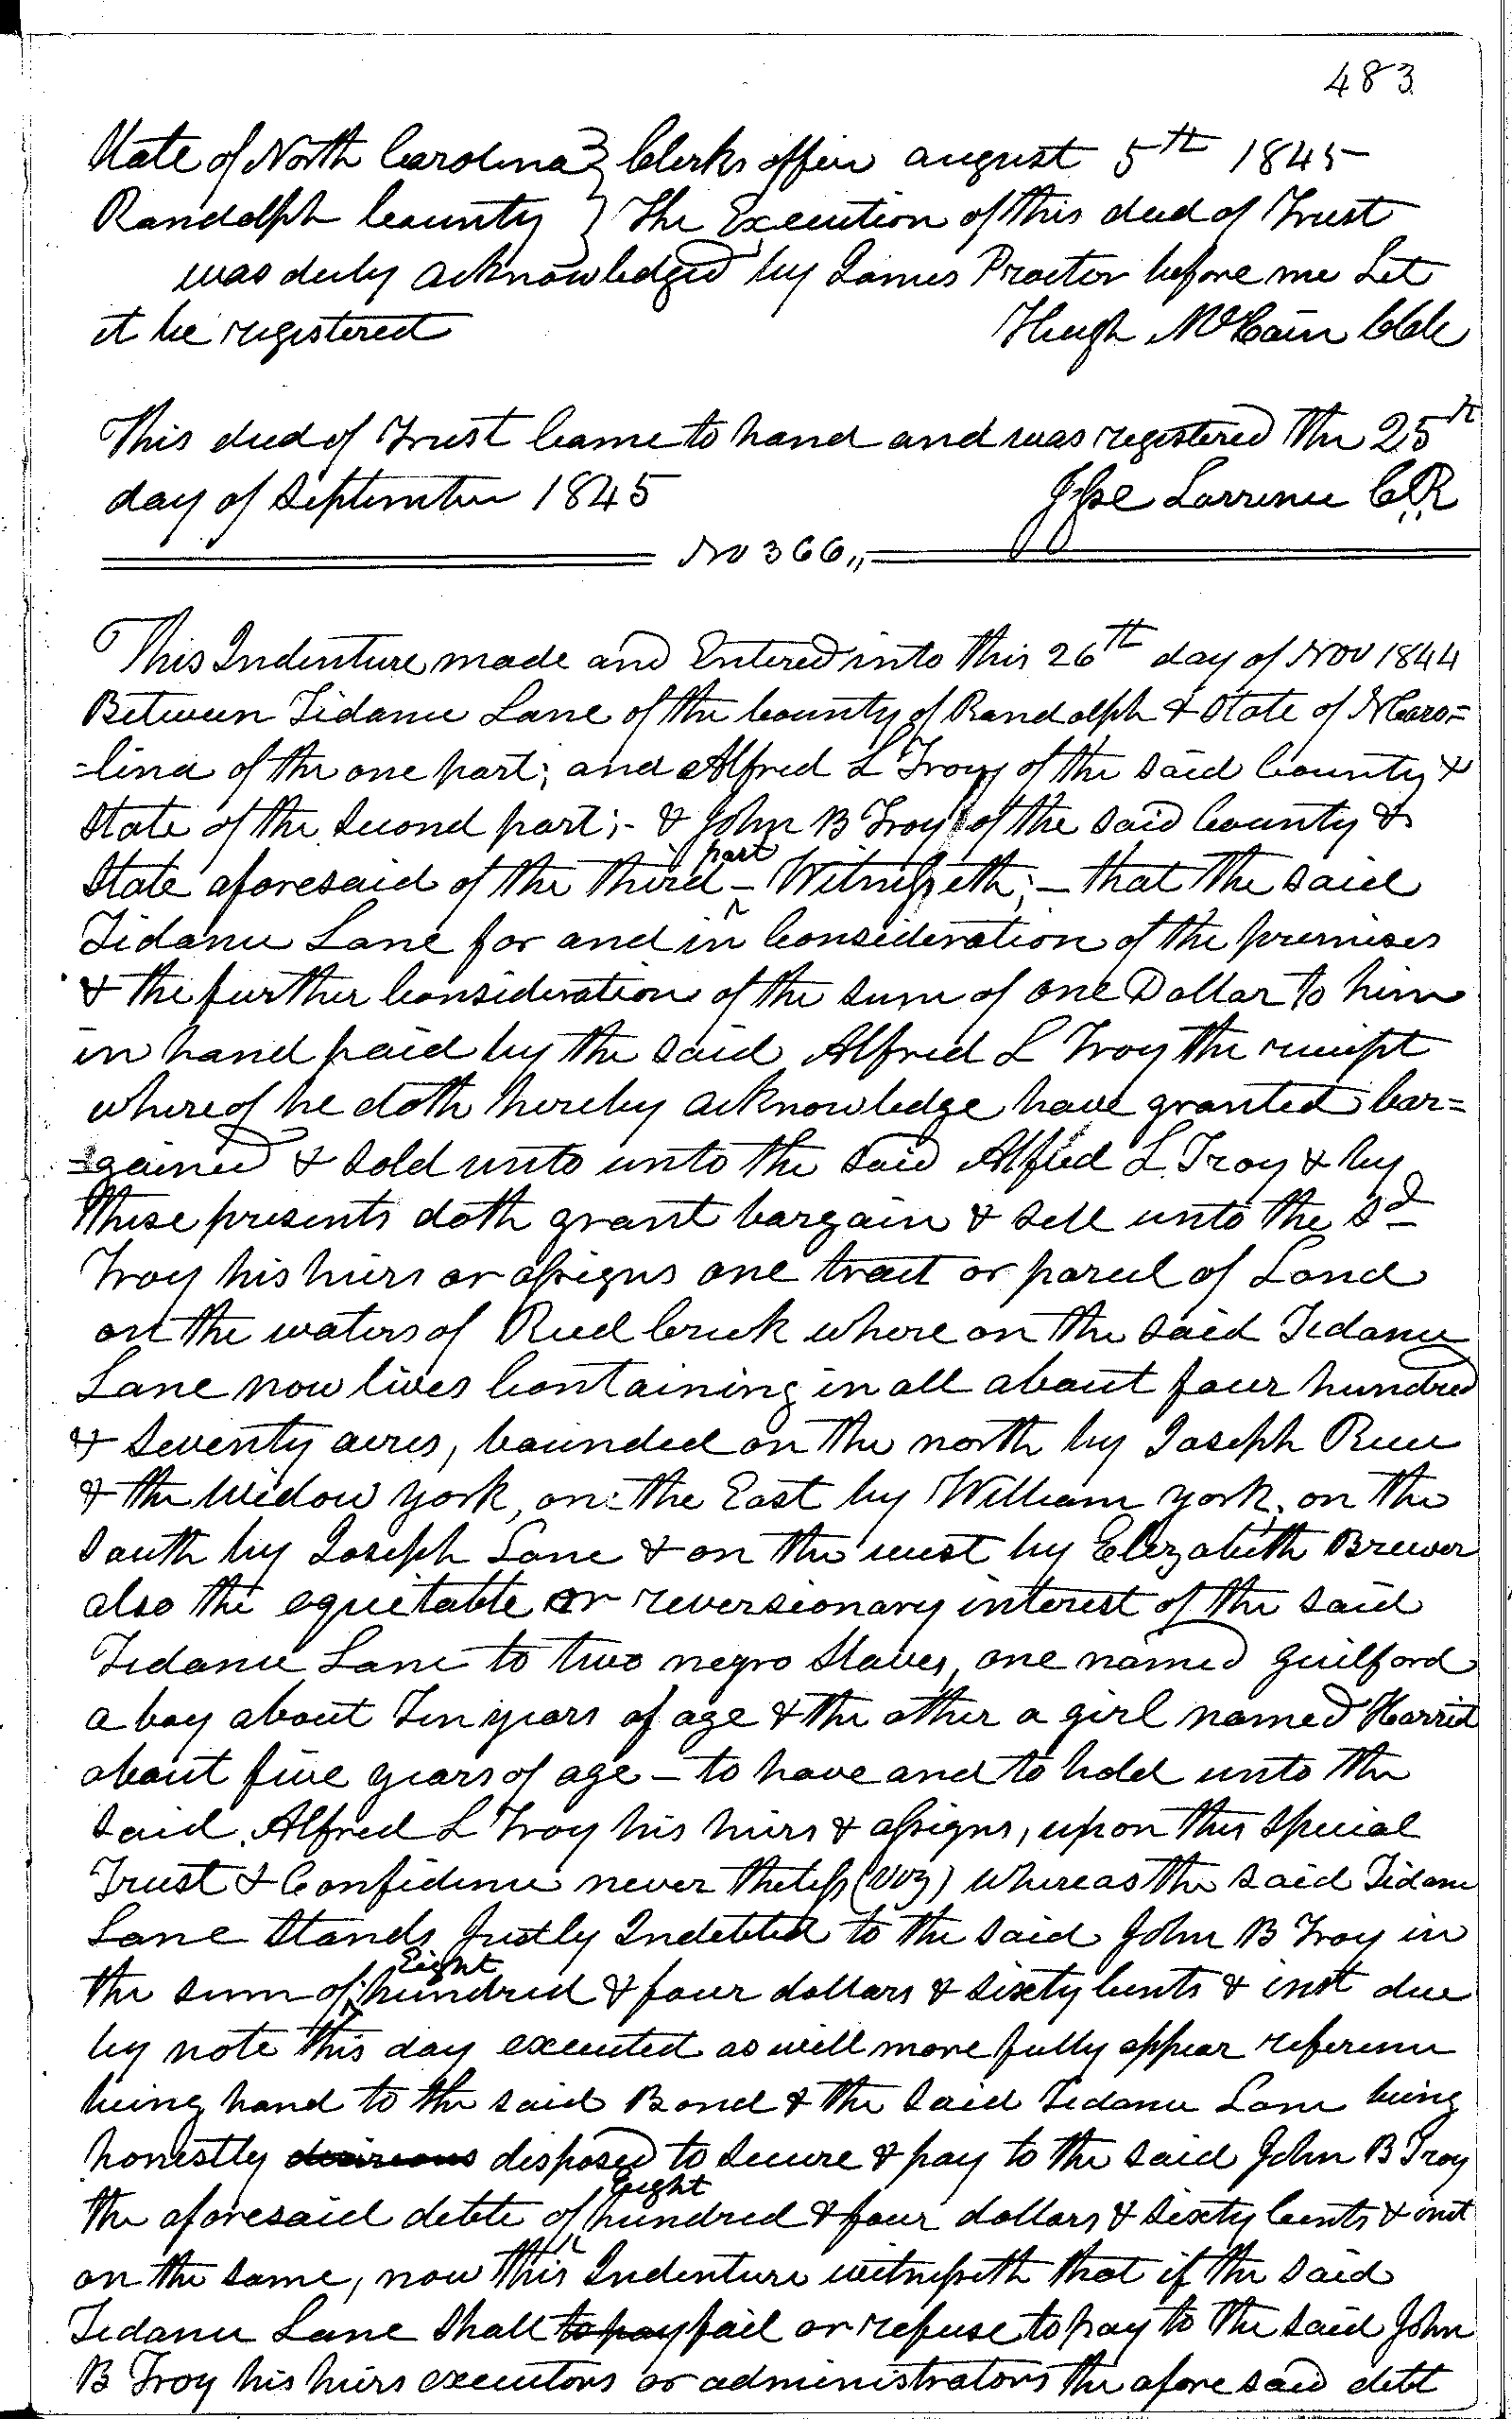 483
State of North Carolina } Clerks office august 5th 1845
Randolph County } The Execution of this deed of Trust
was duly acknowledged by James Proctor before me Let
it be registered Hugh McCain Clk
This deed of Trust Came to hand and was registered the 25th
day of September 1845 Jesse Larrence C.R
No 366,,
This Indenture made and Entered into this 26th day of Nov 1844
Between Tidance Lane of the County of Randolph & State of N Caro=
=lina of the one part; and Alfred L Troy of the said County &
State of the second part;- & John B Troy of the said County &
State aforesaid of the third part - Witnesseth; - that the said
Tidance Lane for and in Consideration of the premises
& the further Consideration of the sum of one Dollar to him
in hand paid by the said Alfred L Troy the receipt
where of he doth hereby acknowledge have granted bar=
=gained & sold unto unto the said Alfred L Troy & by
these presents doth grant bargain & sell unto the sd
Troy his heirs or assigns one tract or parcel of Land
on the waters of Reed Creek where on the said Tidance
Lane now lives Containing in all about four hundred
& seventy acres, bounded on the north by Joseph Reece
& the Widow york, on the East by William york, on the
South by Joseph Lane & on the west by Elizabeth Brewer
also the equitable or reversionary interest of the said
Tidance Lane to two negro Slaves, one named Guilford
a boy about Ten years of age & the other a girl named Harriet
about five years of age - to have and to hold unto the
said Alfred L Troy his heirs & assigns, upon this special
Trust & Confidence never theless (viz) whereas the said Tidance
Lane Stands Justly Indebted to the said John B Troy in
the sum of Eight hundred & four dollars & sixty Cents & inst due
by note this day executed as will more fully appear reference
being hand to the said Bond & the said Tidance Lane being
honestly desireous disposed to secure & pay to the said John B Troy
the aforesaid debte of Eight hundred & four dollars & sixty Cents & inst
on the same, now this Indenture witnesseth that if the said
Tidance Lane shall to pay fail or refuse to pay to the said John
B Troy his heirs executors or administrators the afore said debt